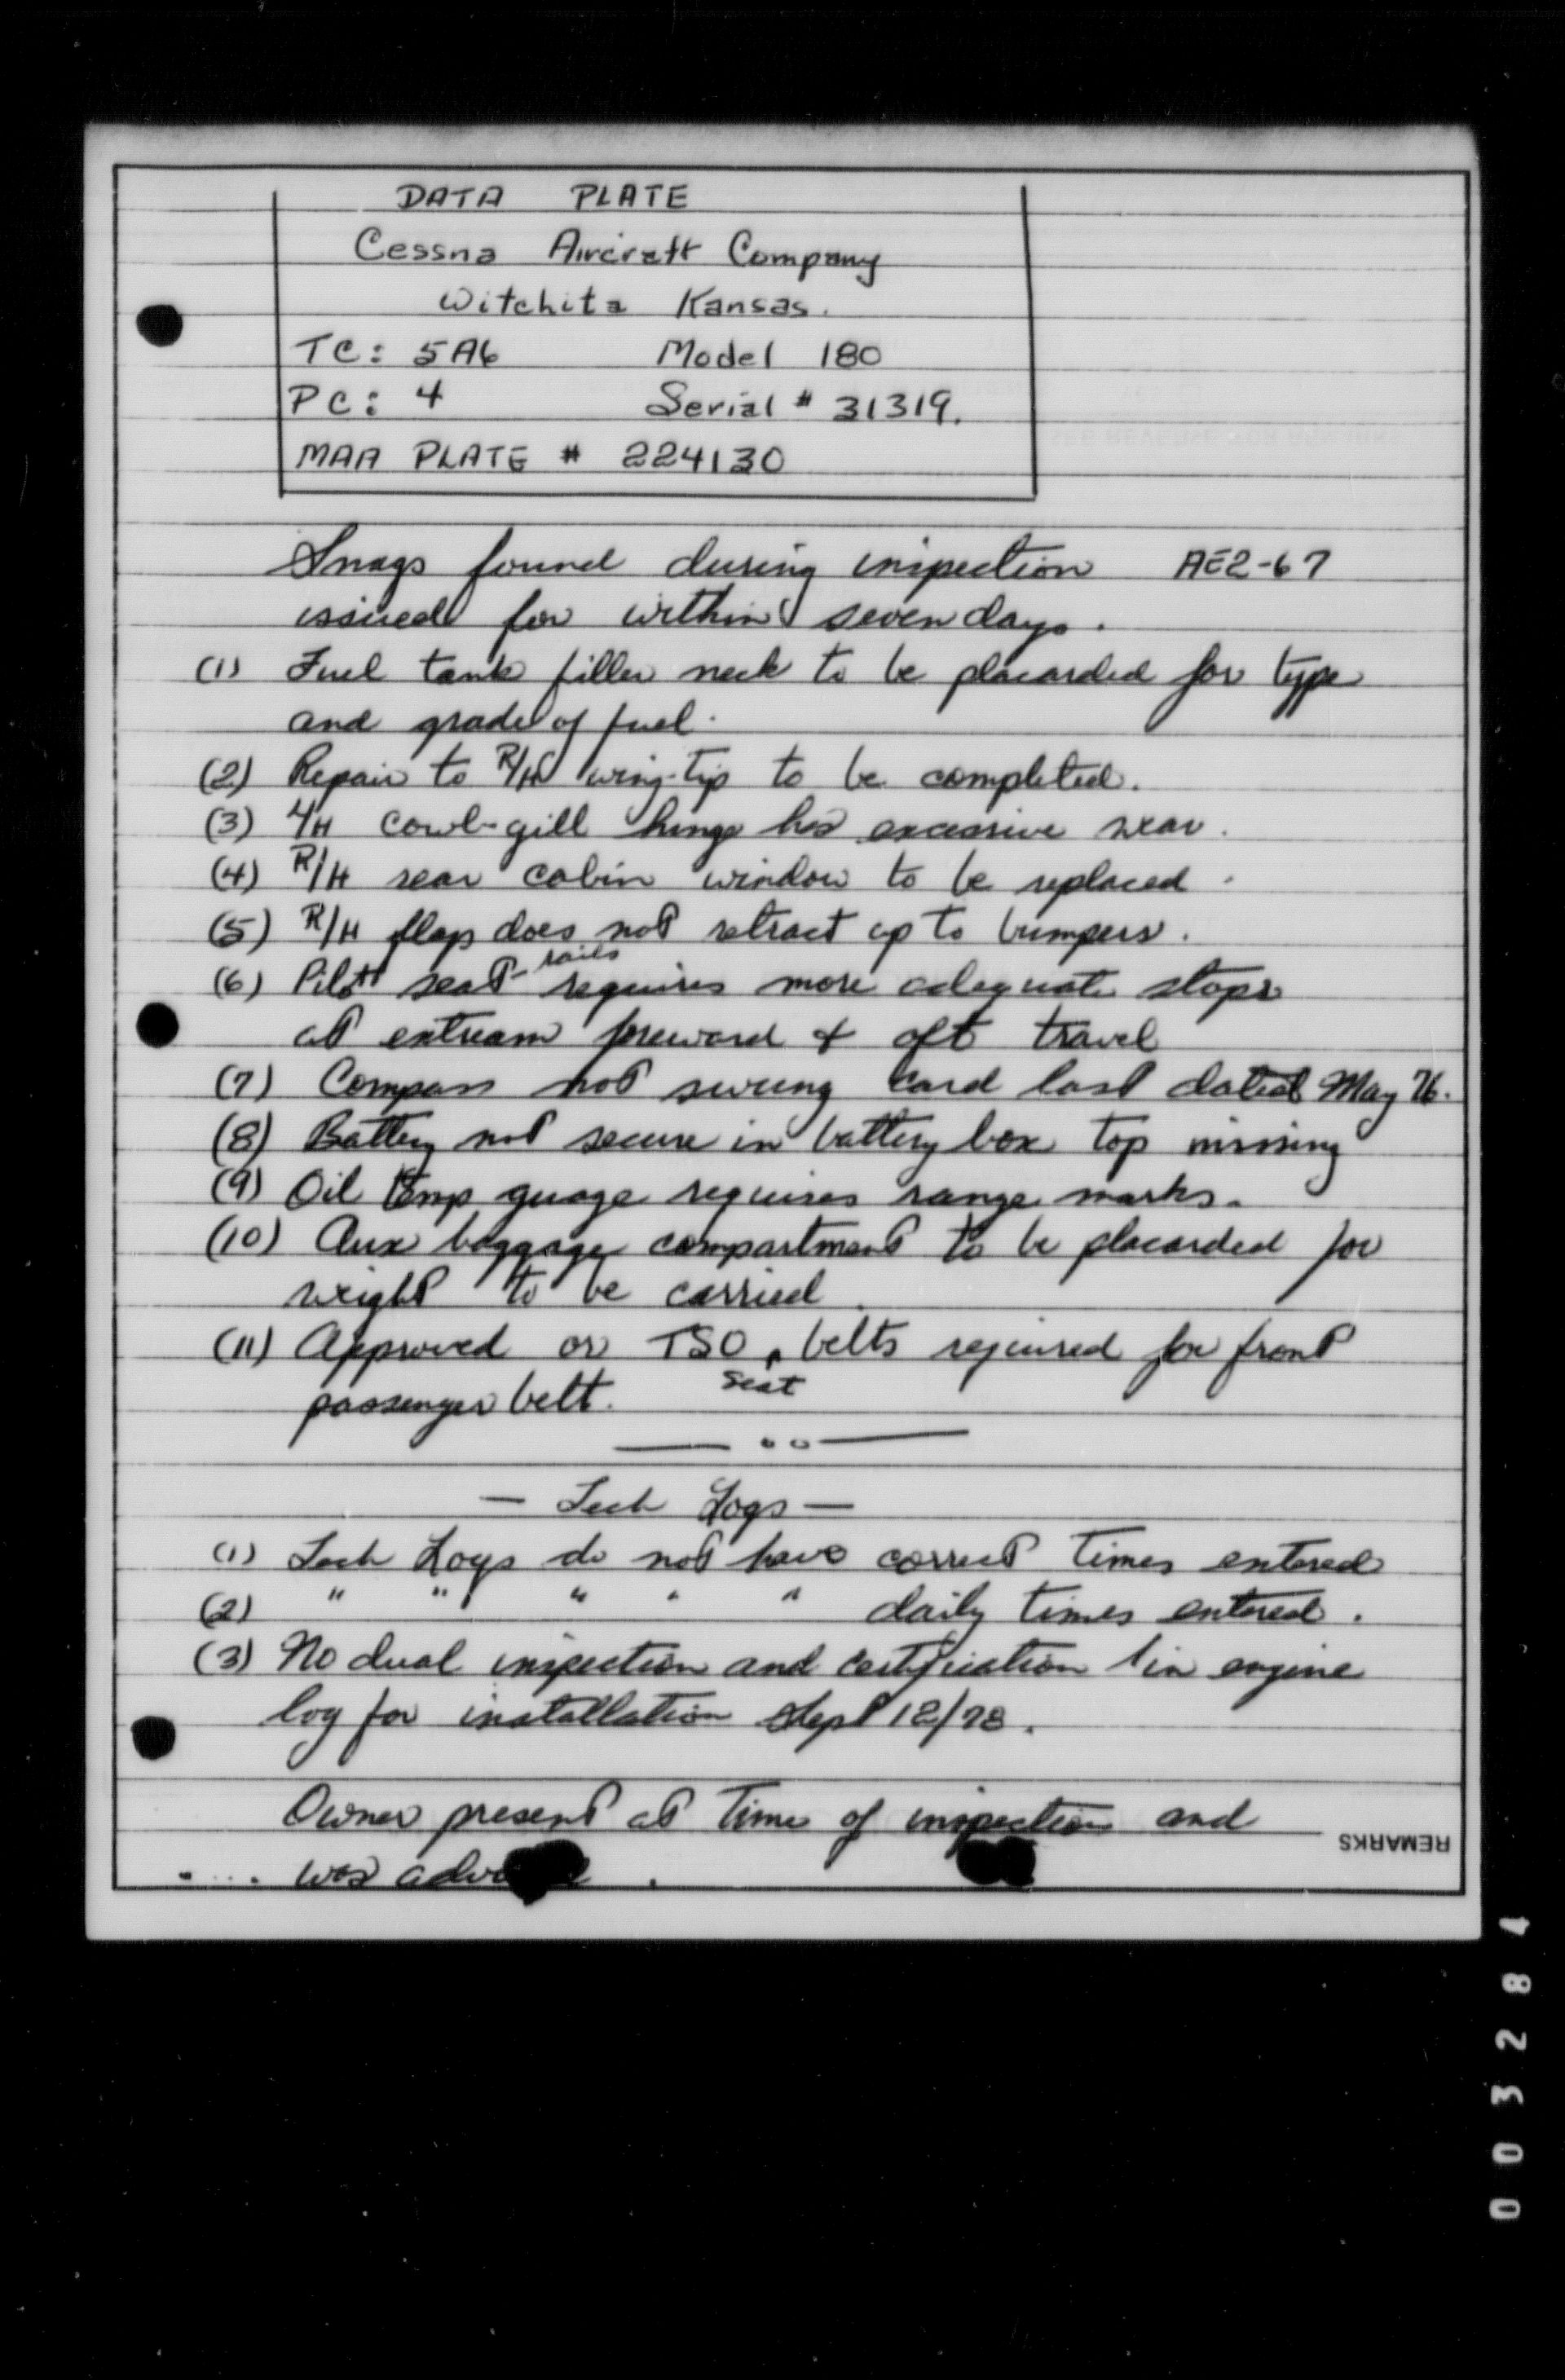 DATA PLATE
Cessna Aircraft Company
Witchita Kansas.
TC: 5A6 Model 180
PC: 4 Serial # 31319.
MAA PLATE # 224130
Snags found during inspection AE2-67
issued for within seven days.
(1) Fuel tank filler neck to be placarded for type
and grade of fuel.
(2) Repair to R/H wing-tip to be completed.
(3) L/H cowl-gill hinge has excessive wear.
(4) R/H rear cabin window to be replaced.
(5) R/H flap does not retract up to bumpers.
(6) Pilot seat-rails requires more adequate stops
at extream foreward & aft travel
(7) Compass not swung card last dated May 76.
(8) Battery not secure in battery box top missing
(9) Oil temp guage requires range marks.
(10) Aux baggage compartment to be placarded for
weight to be carried.
(11) Approved or TSO seat belts required for front
passenger belt.
— Tech Logs —
(1) Tech Logs do not have correct times entered
(2) " " " " " daily times entered.
(3) No dual inspection and certification in engine
log for installation Sept 12/78.
Owner present at time of inspection and
was
REMARKS
003284